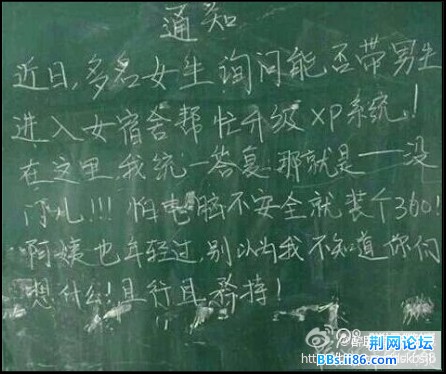 通知
近日,多名女生询问能否带男生
进入女宿舍帮忙升级XP系统!
在这里我统一答复那就是——没
门儿!!!怕电脑不安全就装个360!
阿姨也年轻过,别以为我不知道你们
想什么!且行且矜持!
荆网论坛
BBs.ii86.com